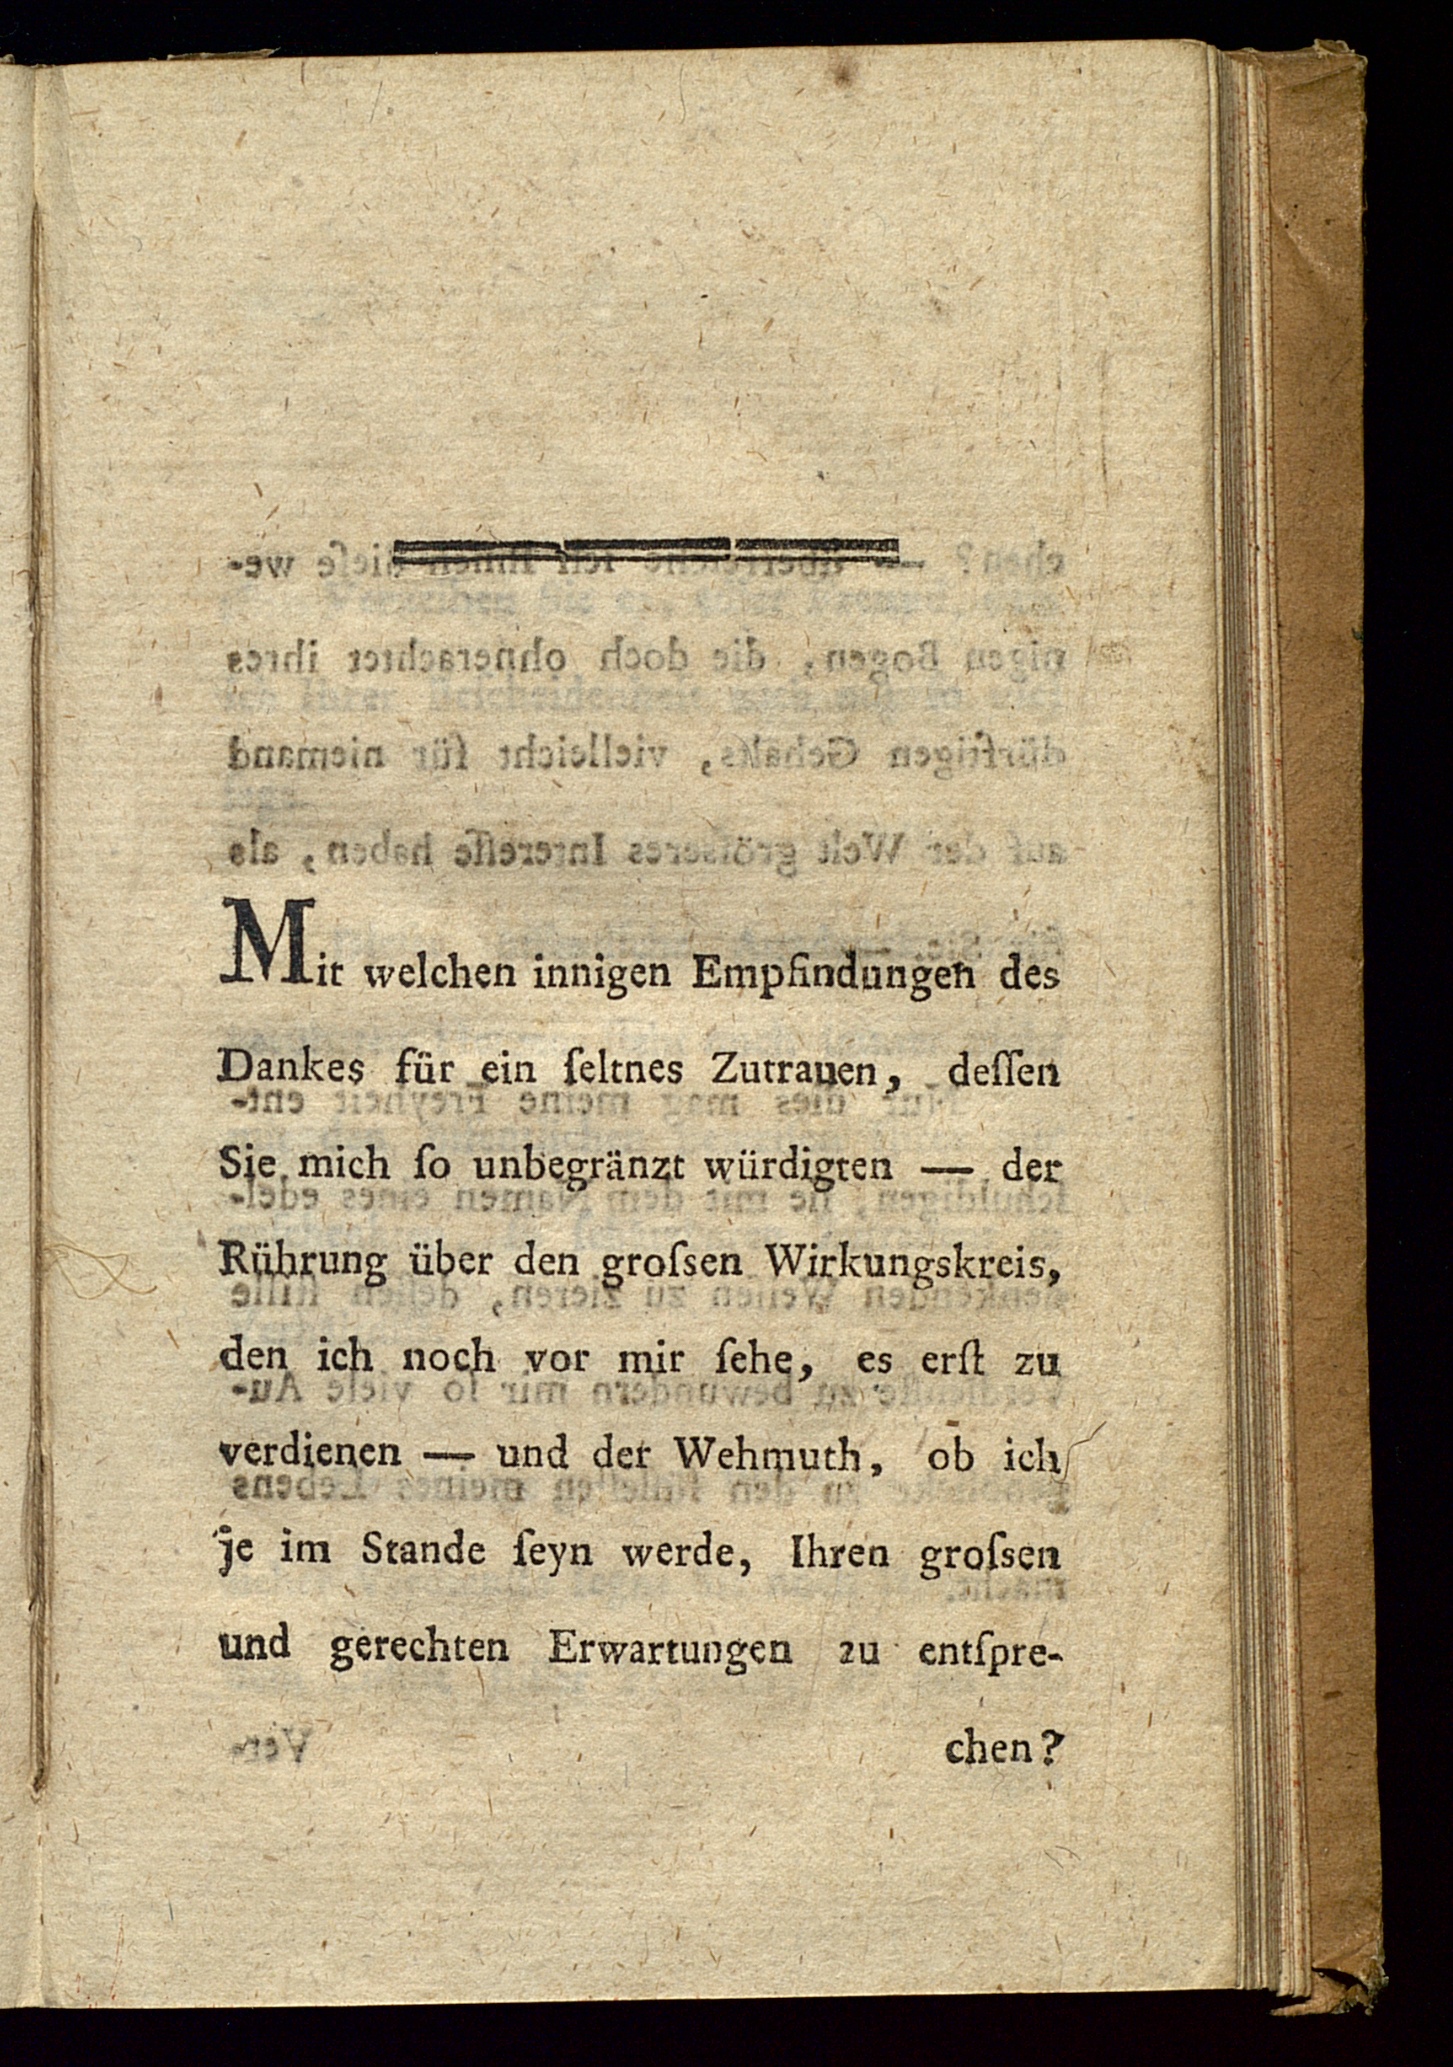 Mit welchen innigen Empfindungen des
Dankes für ein ſeltnes Zutrauen, deſſen
Sie mich ſo unbegränzt würdigten — der
Rührung über den groſsen Wirkungskreis,
den ich noch vor mir ſehe, es erſt zu
verdienen — und der Wehmuth, ob ich
je im Stande ſeyn werde, Ihren groſsen
und gerechten Erwartungen zu entſpre-
chen?